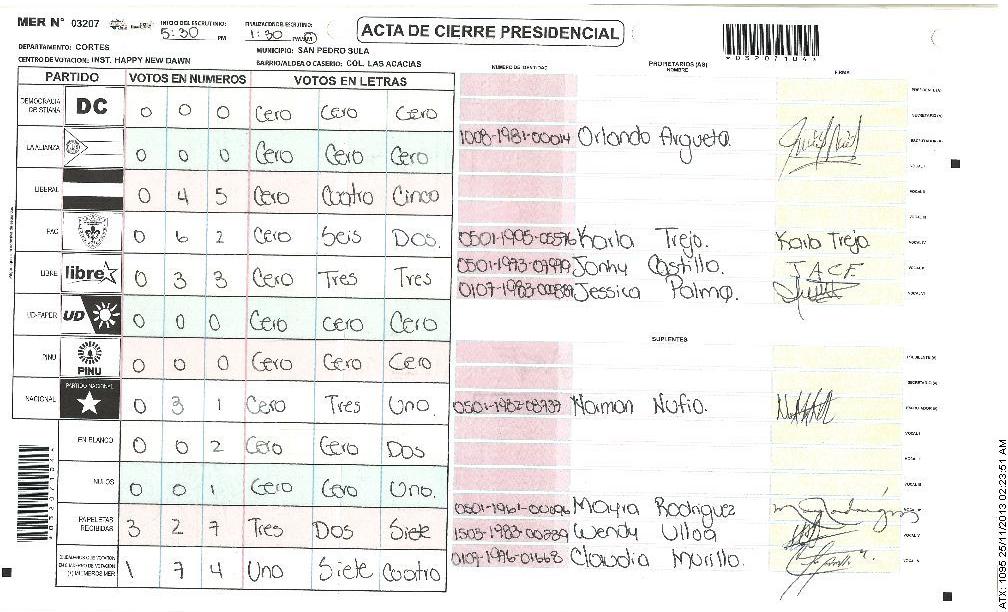 MER N° 03207
INICIO DEL ESCRUTINIO:
5:30 PM
FINALIZACION DE ESCRUTINIO:
1:30 PM/AM
ACTA DE CIERRE PRESIDENCIAL
*05207104*
DEPARTAMENTO: CORTES
MUNICIPIO: SAN PEDRO SULA
CENTRO DE VOTACION: INST. HAPPY NEW DAWN
BARRIO/ALDEA O CASERIO: COL. LAS ACACIAS
PARTIDO VOTOS EN NUMEROS VOTOS EN LETRAS
NUMERO DE IDENTIDAD PROPIETARIOS (AS) NOMBRE FIRMA
DEMOCRACIA CRISTIANA DC 0 0 0 Cero Cero Cero
LA ALIANZA 0 0 0 Cero Cero Cero
1008-1981-00014 Orlando Argueta.
LIBERAL 0 4 5 Cero Cuatro Cinco
PAC 0 6 2 Cero Seis Dos.
Karla Trejo. Karla Trejo
LIBRE libre 0 3 3 Cero Tres Tres
Jonhy Castillo. JACF
Jessica Palma.
UD-FAPER UD 0 0 0 Cero Cero Cero
SUPLENTES
PINU PINU 0 0 0 Cero Cero Cero
NACIONAL PARTIDO NACIONAL 0 3 1 Cero Tres Uno.
Norman Nufio.
EN BLANCO 0 0 2 Cero Cero Dos
NULOS 0 0 1 Cero Cero Uno.
Mayra Rodriguez
PAPELETAS RECIBIDAS 3 2 7 Tres Dos Siete
Wendy Ulloa
1 7 4 Uno Siete Cuatro
Claudia Murillo.
ATX: 1095 25/11/2013 02:23:51 AM